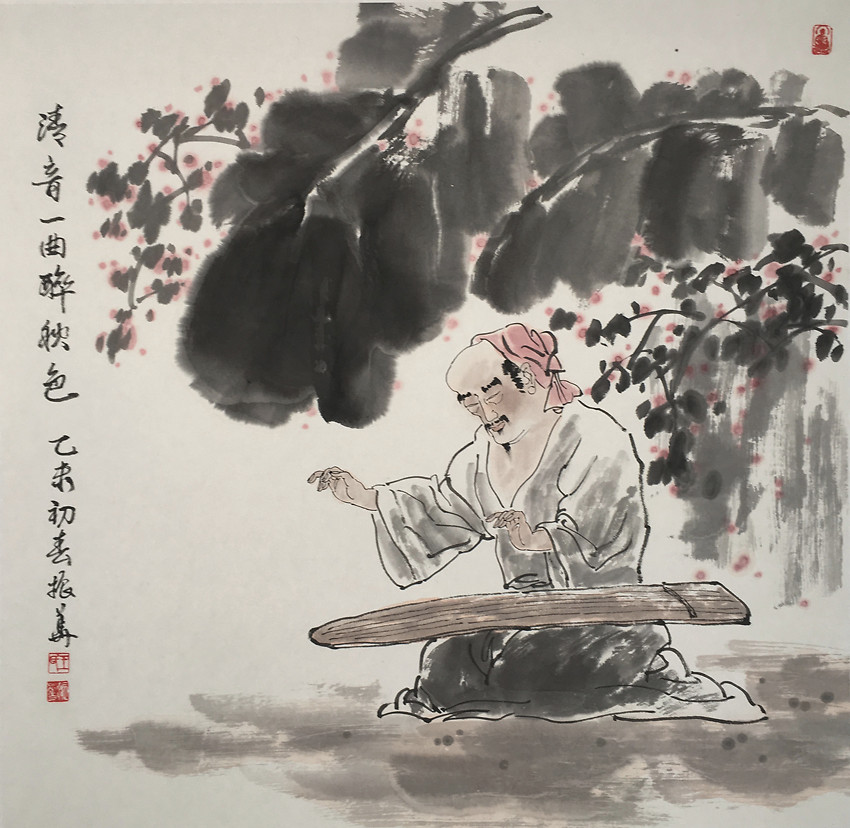 清音一曲醉秋色 乙未初春振华